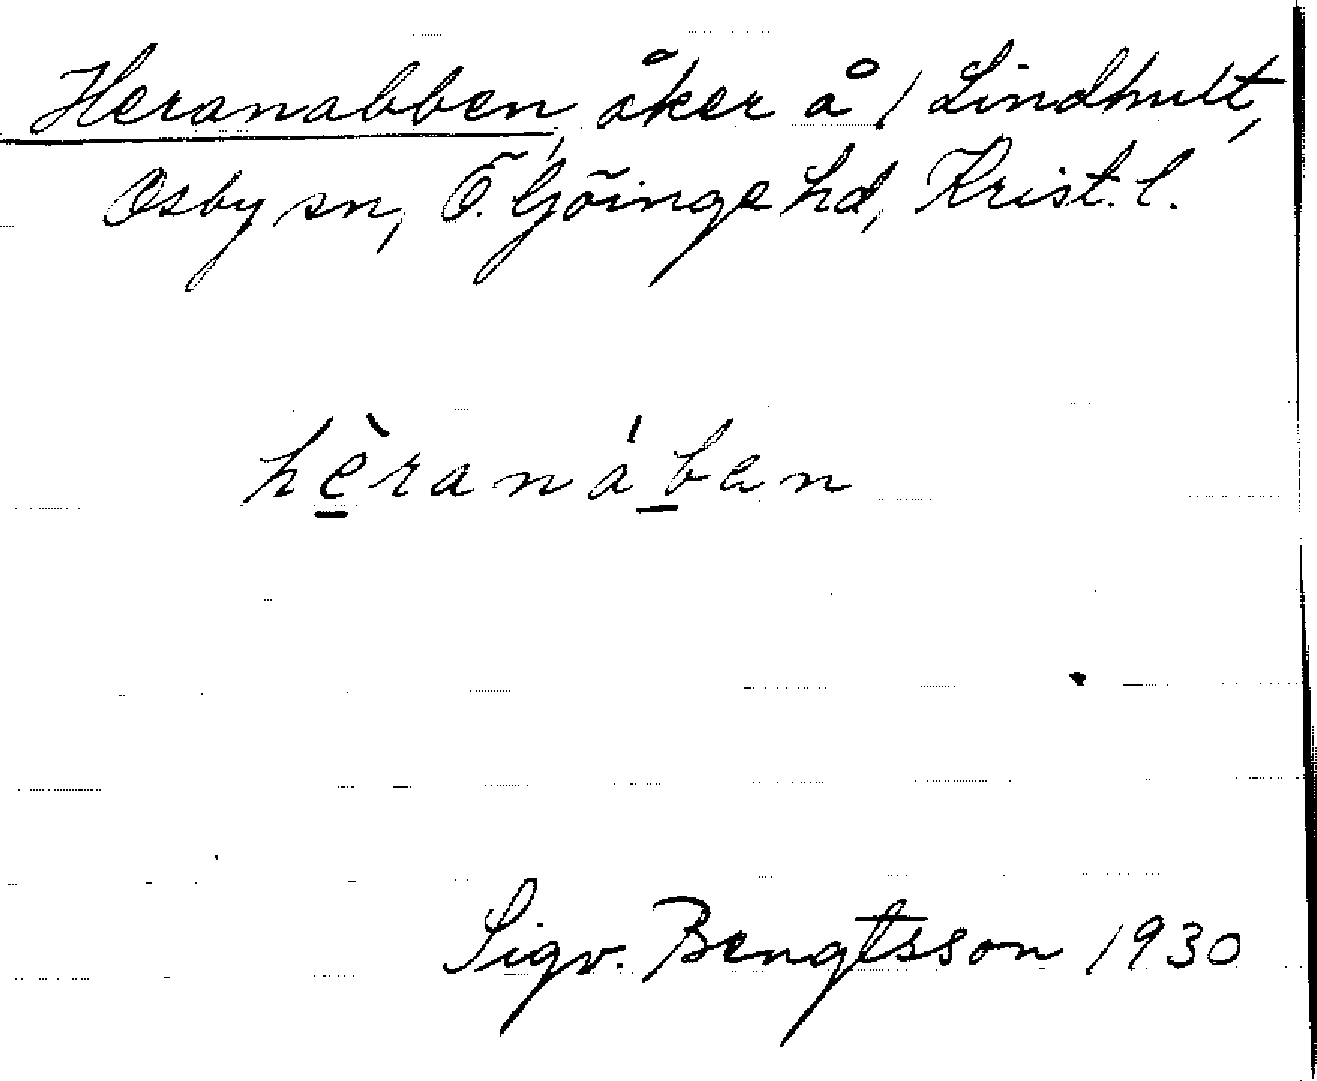 Heranabben, åker å / Lindhult,
Osby sn, Ö. Göinge hd, Krist. l.
hè̱ranáḇen
Sigv. Bengtsson 1930